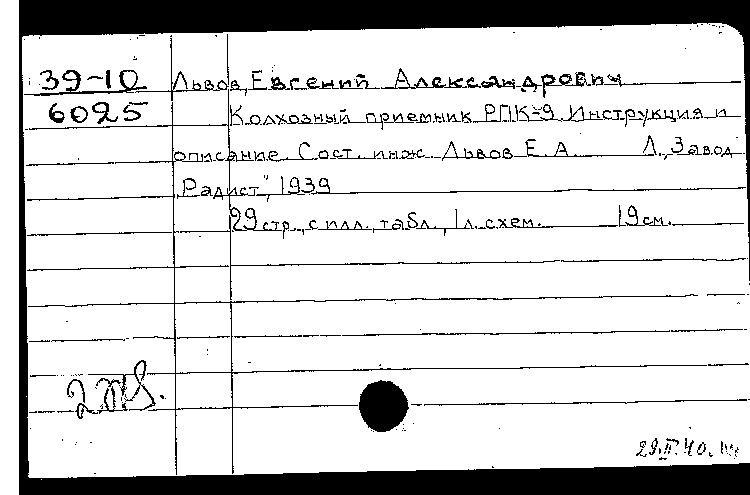 39-10 Львов, Евгений Александрович
6025 Колхозный приемник РПК-9. Инструкция и
описание. Сост. инж. Львов Е. А. Л., Завод
"Радист", 1939
29 стр., с илл., табл., 1 л. схем. 19 см.
29.II.40.